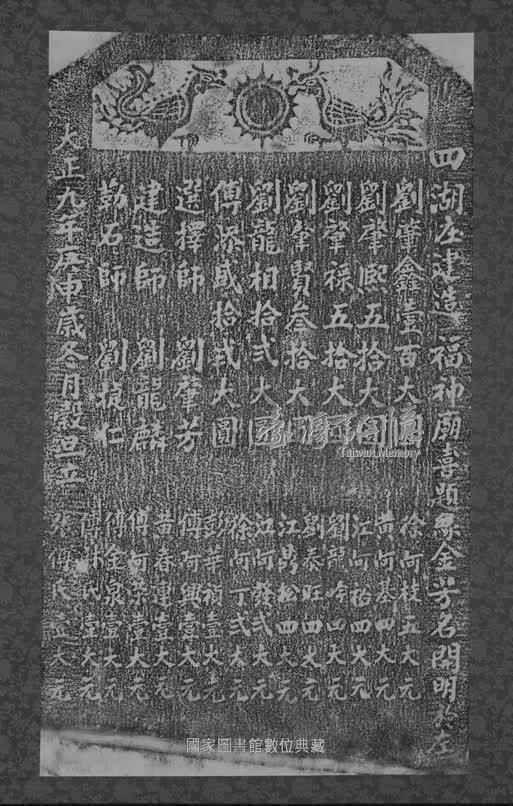 四湖庄建造福神廟喜題緣金芳名開明於左
劉肇鑫壹百大
劉肇熙五拾大
劉肇祿五拾大
劉肇賢叁拾大
劉龍相拾弍大
傅添盛拾弍大圓
選擇師 劉肇芳
建造師 劉龍麟
勒石師 劉振仁
徐阿枝五大元
黃阿基四大元
江阿 四大元
劉龍 四大元
劉泰旺四大元
江 松四大元
江阿發弍大元
徐阿丁弍大元
彭華 壹大元
傅阿興壹大元
黃春 壹大元
傅阿 壹大元
傅金泉壹大元
傅 氏壹大元
張傅氏壹大元
大正九年庚申歲冬月穀旦立
臺灣記憶
Taiwan Memory
國家圖書館數位典藏